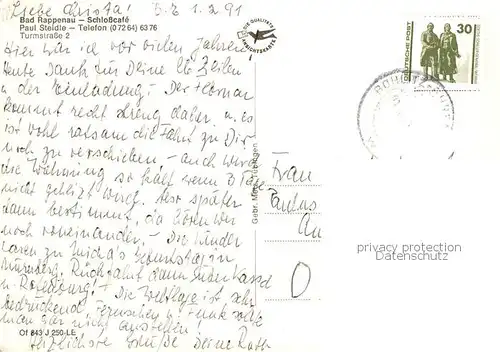 Liebe Christa! B.Z 1.2.91
Bad Rappenau – Schloßcafé
Paul Steidle – Telefon (0 72 64) 63 76
Turmstraße 2
Hier war ich vor vielen Jahren!
Heute Dank für Deine lb Zeilen
u der Einladung – Der
kommt recht streng daher u. es
ist wohl ratsam die Fahrt zu Dir
noch zu verschieben – auch wird
die Wohnung so kalt wenn 3 Tage
nicht geheizt wird. Aber später
dann bestimmt, da hören wir
noch voneinander – Die Kinder
waren zu Micha's Geburtstag in
Nürnberg. Rückfahrt dann über Kassel
u. – Die Weltlage ist sehr
bedrückend, Fernsehen u Funk sollte
man hier nicht anstellen –
Herzlichste Grüße Deine Ruth
Of 843 J 250-LE
DIE QUALITÄTS
ANSICHTSKARTE
Gebr. Metz, Tübingen
DEUTSCHE POST
30
Frau
privacy protection
Datenschutz